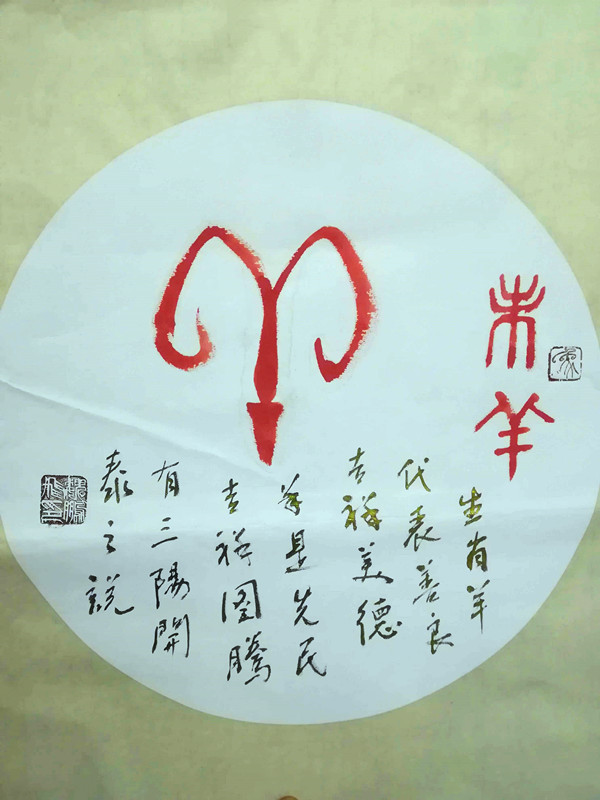 未羊
羊
生肖羊
代表善良
吉祥美德
羊是先民
吉祥图騰
有三陽開
泰之説